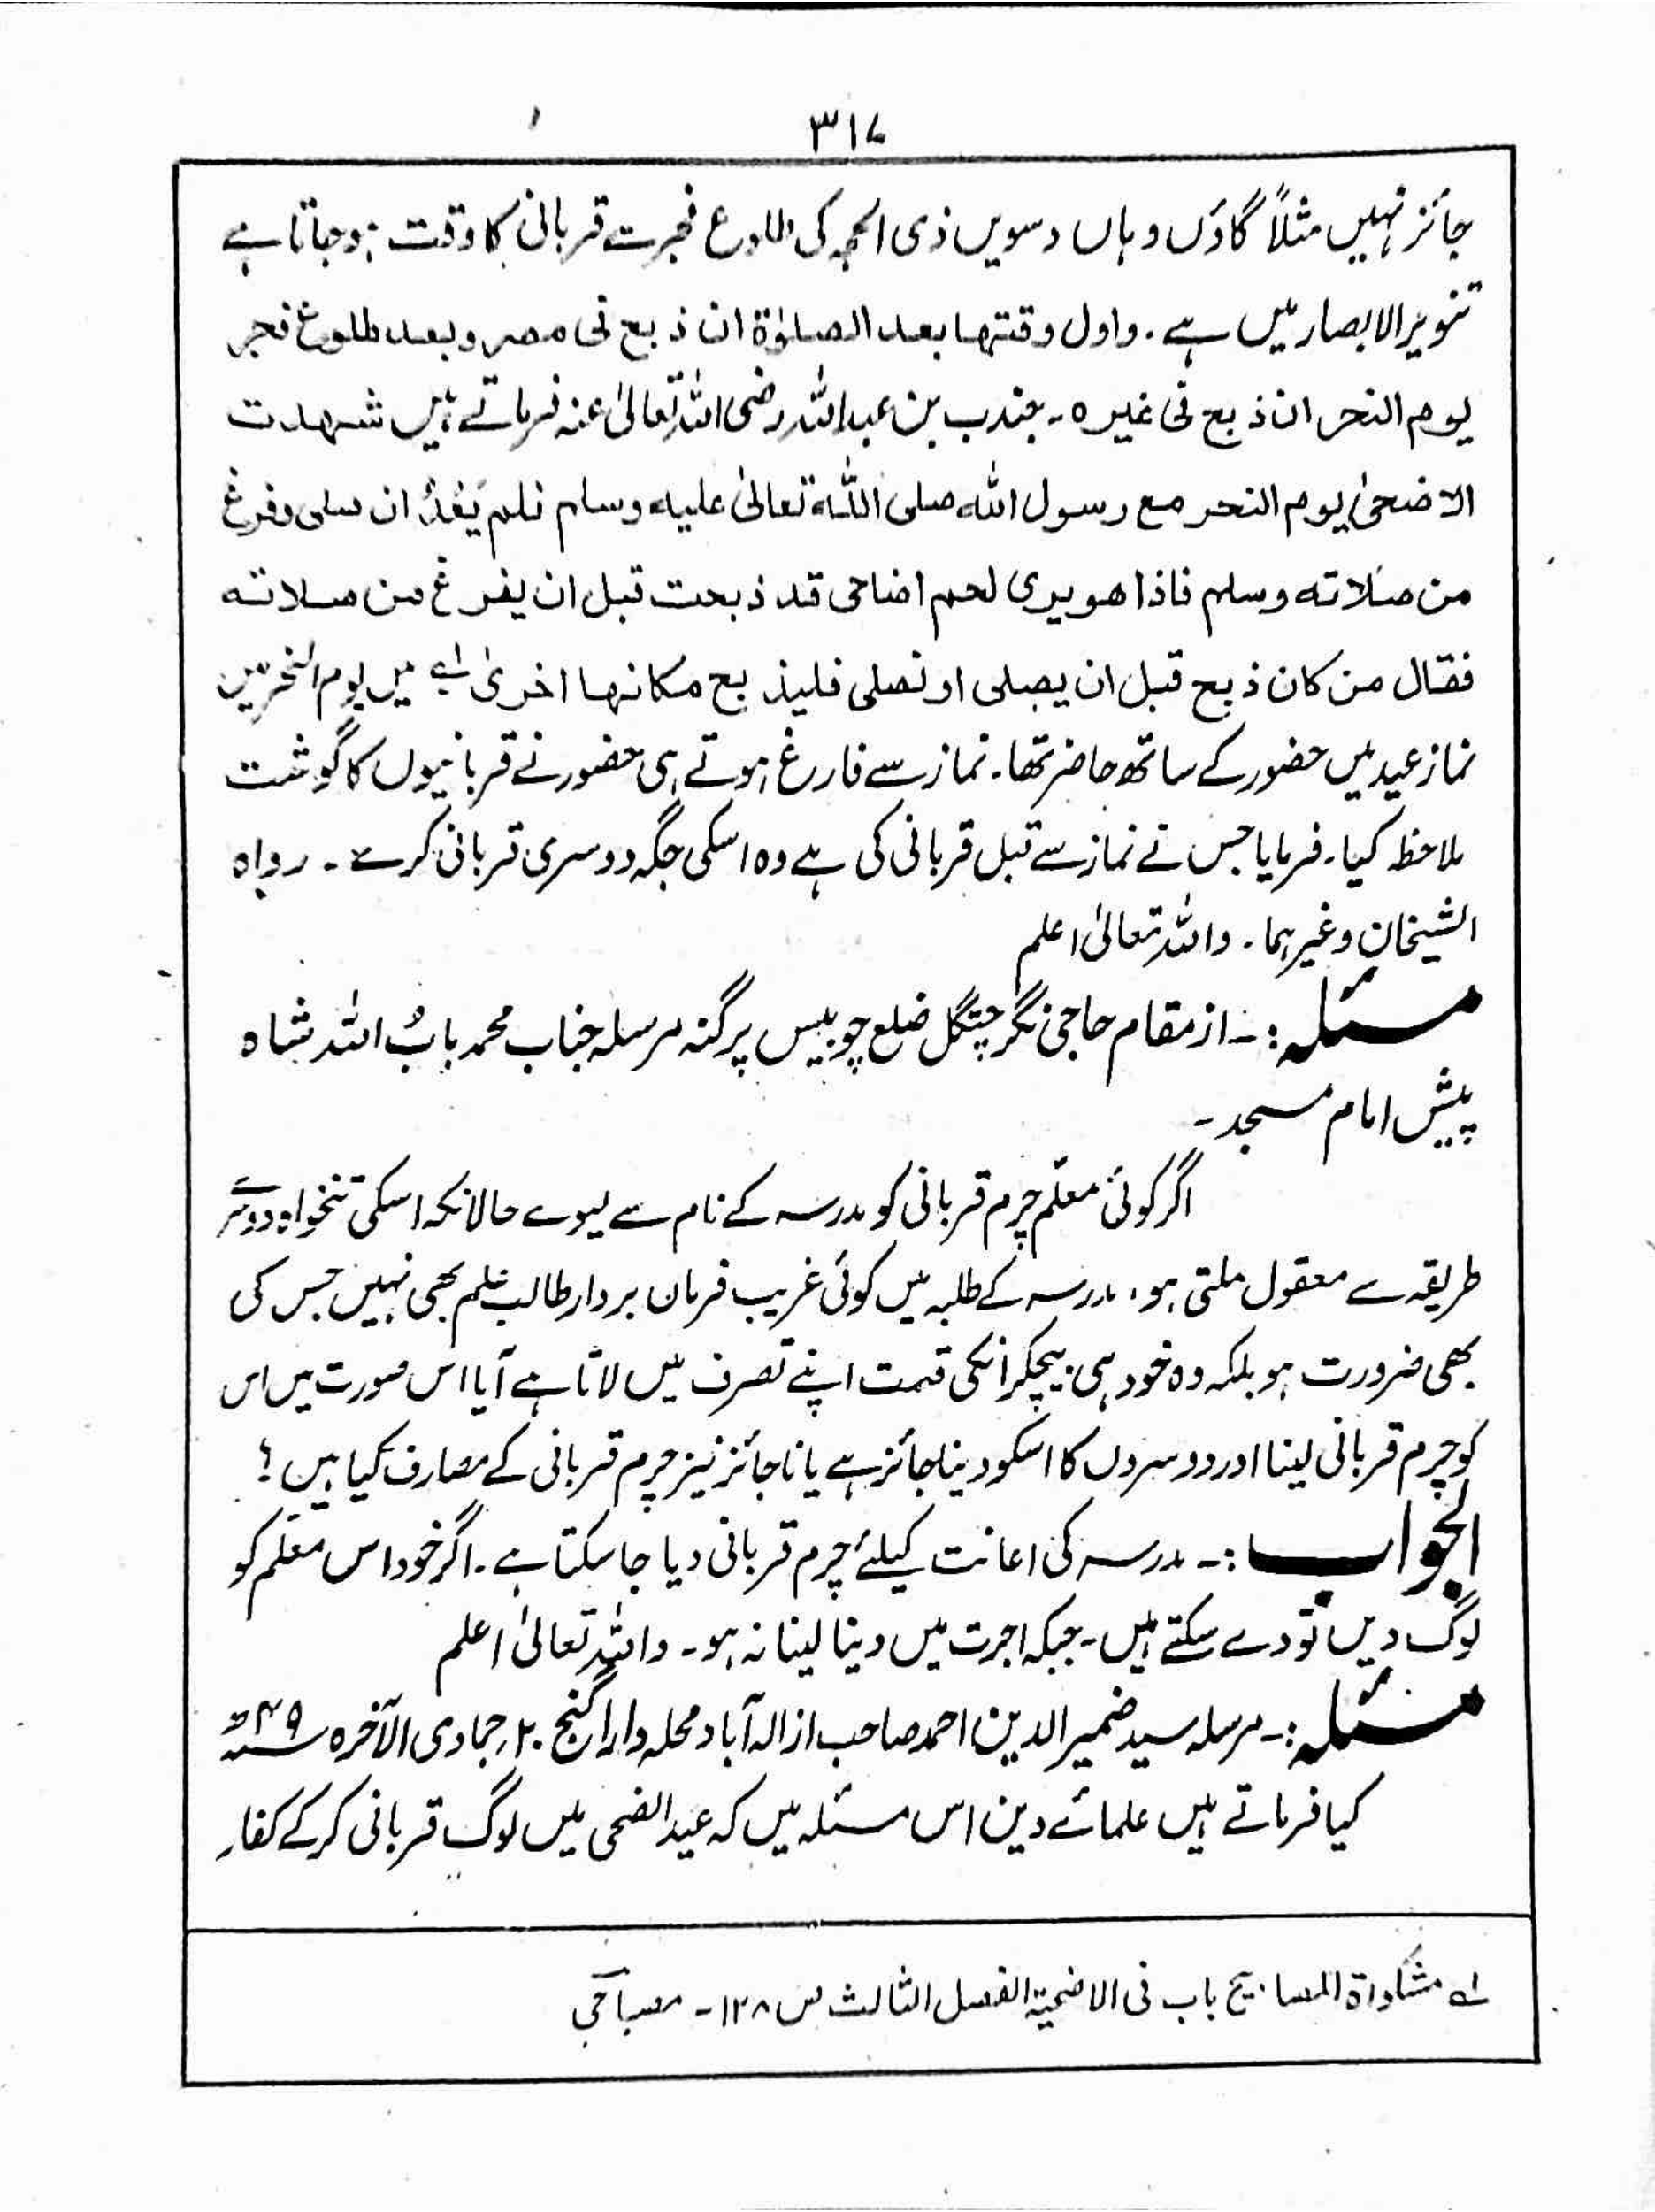 ۳۱۷
جائز نہیں مثلاً گاؤں وہاں دسویں ذی الحجہ کی طلوع فجر سے قربانی کا وقت ہو جاتا ہے
تنویر الابصار میں ہے۔ واول وقتھا بعد الصلوٰۃ ان ذبح فی مصر وبعد طلوع فجر
یوم النحر ان ذبح فی غیرہ۔ جندب بن عبداللہ رضی اللہ تعالیٰ عنہ فرماتے ہیں شھدت
الاضحیٰ یوم النحر مع رسول اللہ صلی اللہ تعالیٰ علیہ وسلم فلم یَعْدُ ان صلی وفرغ
من صلاتہ وسلم فاذا ھو یری لحم اضاحی قد ذبحت قبل ان یفرغ من صلاتہ
فقال من کان ذبح قبل ان یصلی او نصلی فلیذبح مکانھا اخریٰ لہ میں یوم النحر میں
نماز عید میں حضور کے ساتھ حاضر تھا۔ نماز سے فارغ ہوتے ہی حضور نے قربانیوں کا گوشت
ملاحظہ کیا۔ فرمایا جس نے نماز سے قبل قربانی کی ہے وہ اسکی جگہ دوسری قربانی کرے۔ رواہ
الشیخان وغیرہما۔ واللہ تعالیٰ اعلم
مسئلہ:۔ از مقام حاجی نگر چٹگل ضلع چوبیس پرگنہ مرسلہ جناب محمد بابُ اللہ شاہ
پیش امام مسجد۔
اگر کوئی معلّم چرم قربانی کو مدرسہ کے نام سے لیوے حالانکہ اسکی تنخواہ دوسرے
طریقہ سے معقول ملتی ہو، مدرسہ کے طلبہ میں کوئی غریب فرمان بردار طالب علم بھی نہیں جس کی
بھی ضرورت ہو بلکہ وہ خود ہی بیچکر انکی قیمت اپنے تصرف میں لاتا ہے آیا اس صورت میں اس
کو چرم قربانی لینا اور دوسروں کا اسکو دینا جائز ہے یا ناجائز نیز چرم قربانی کے مصارف کیا ہیں؟
الجواب:۔ مدرسہ کی اعانت کیلئے چرم قربانی دیا جا سکتا ہے۔ اگر خود اس معلّم کو
لوگ دیں تو دے سکتے ہیں۔ جبکہ اجرت میں دینا لینا نہ ہو۔ واللہ تعالیٰ اعلم
مسئلہ:۔ مرسلہ سید ضمیر الدین احمد صاحب از الہ آباد محلہ دارا گنج ۲۰؍ جمادی الآخرہ سنہ ۴۹ھ
کیا فرماتے ہیں علمائے دین اس مسئلہ میں کہ عید الضحی میں لوگ قربانی کرکے کفار
لہ مشکاۃ المصابیح باب فی الاضحیۃ الفصل الثالث ص ۱۲۸۔ مصباحی